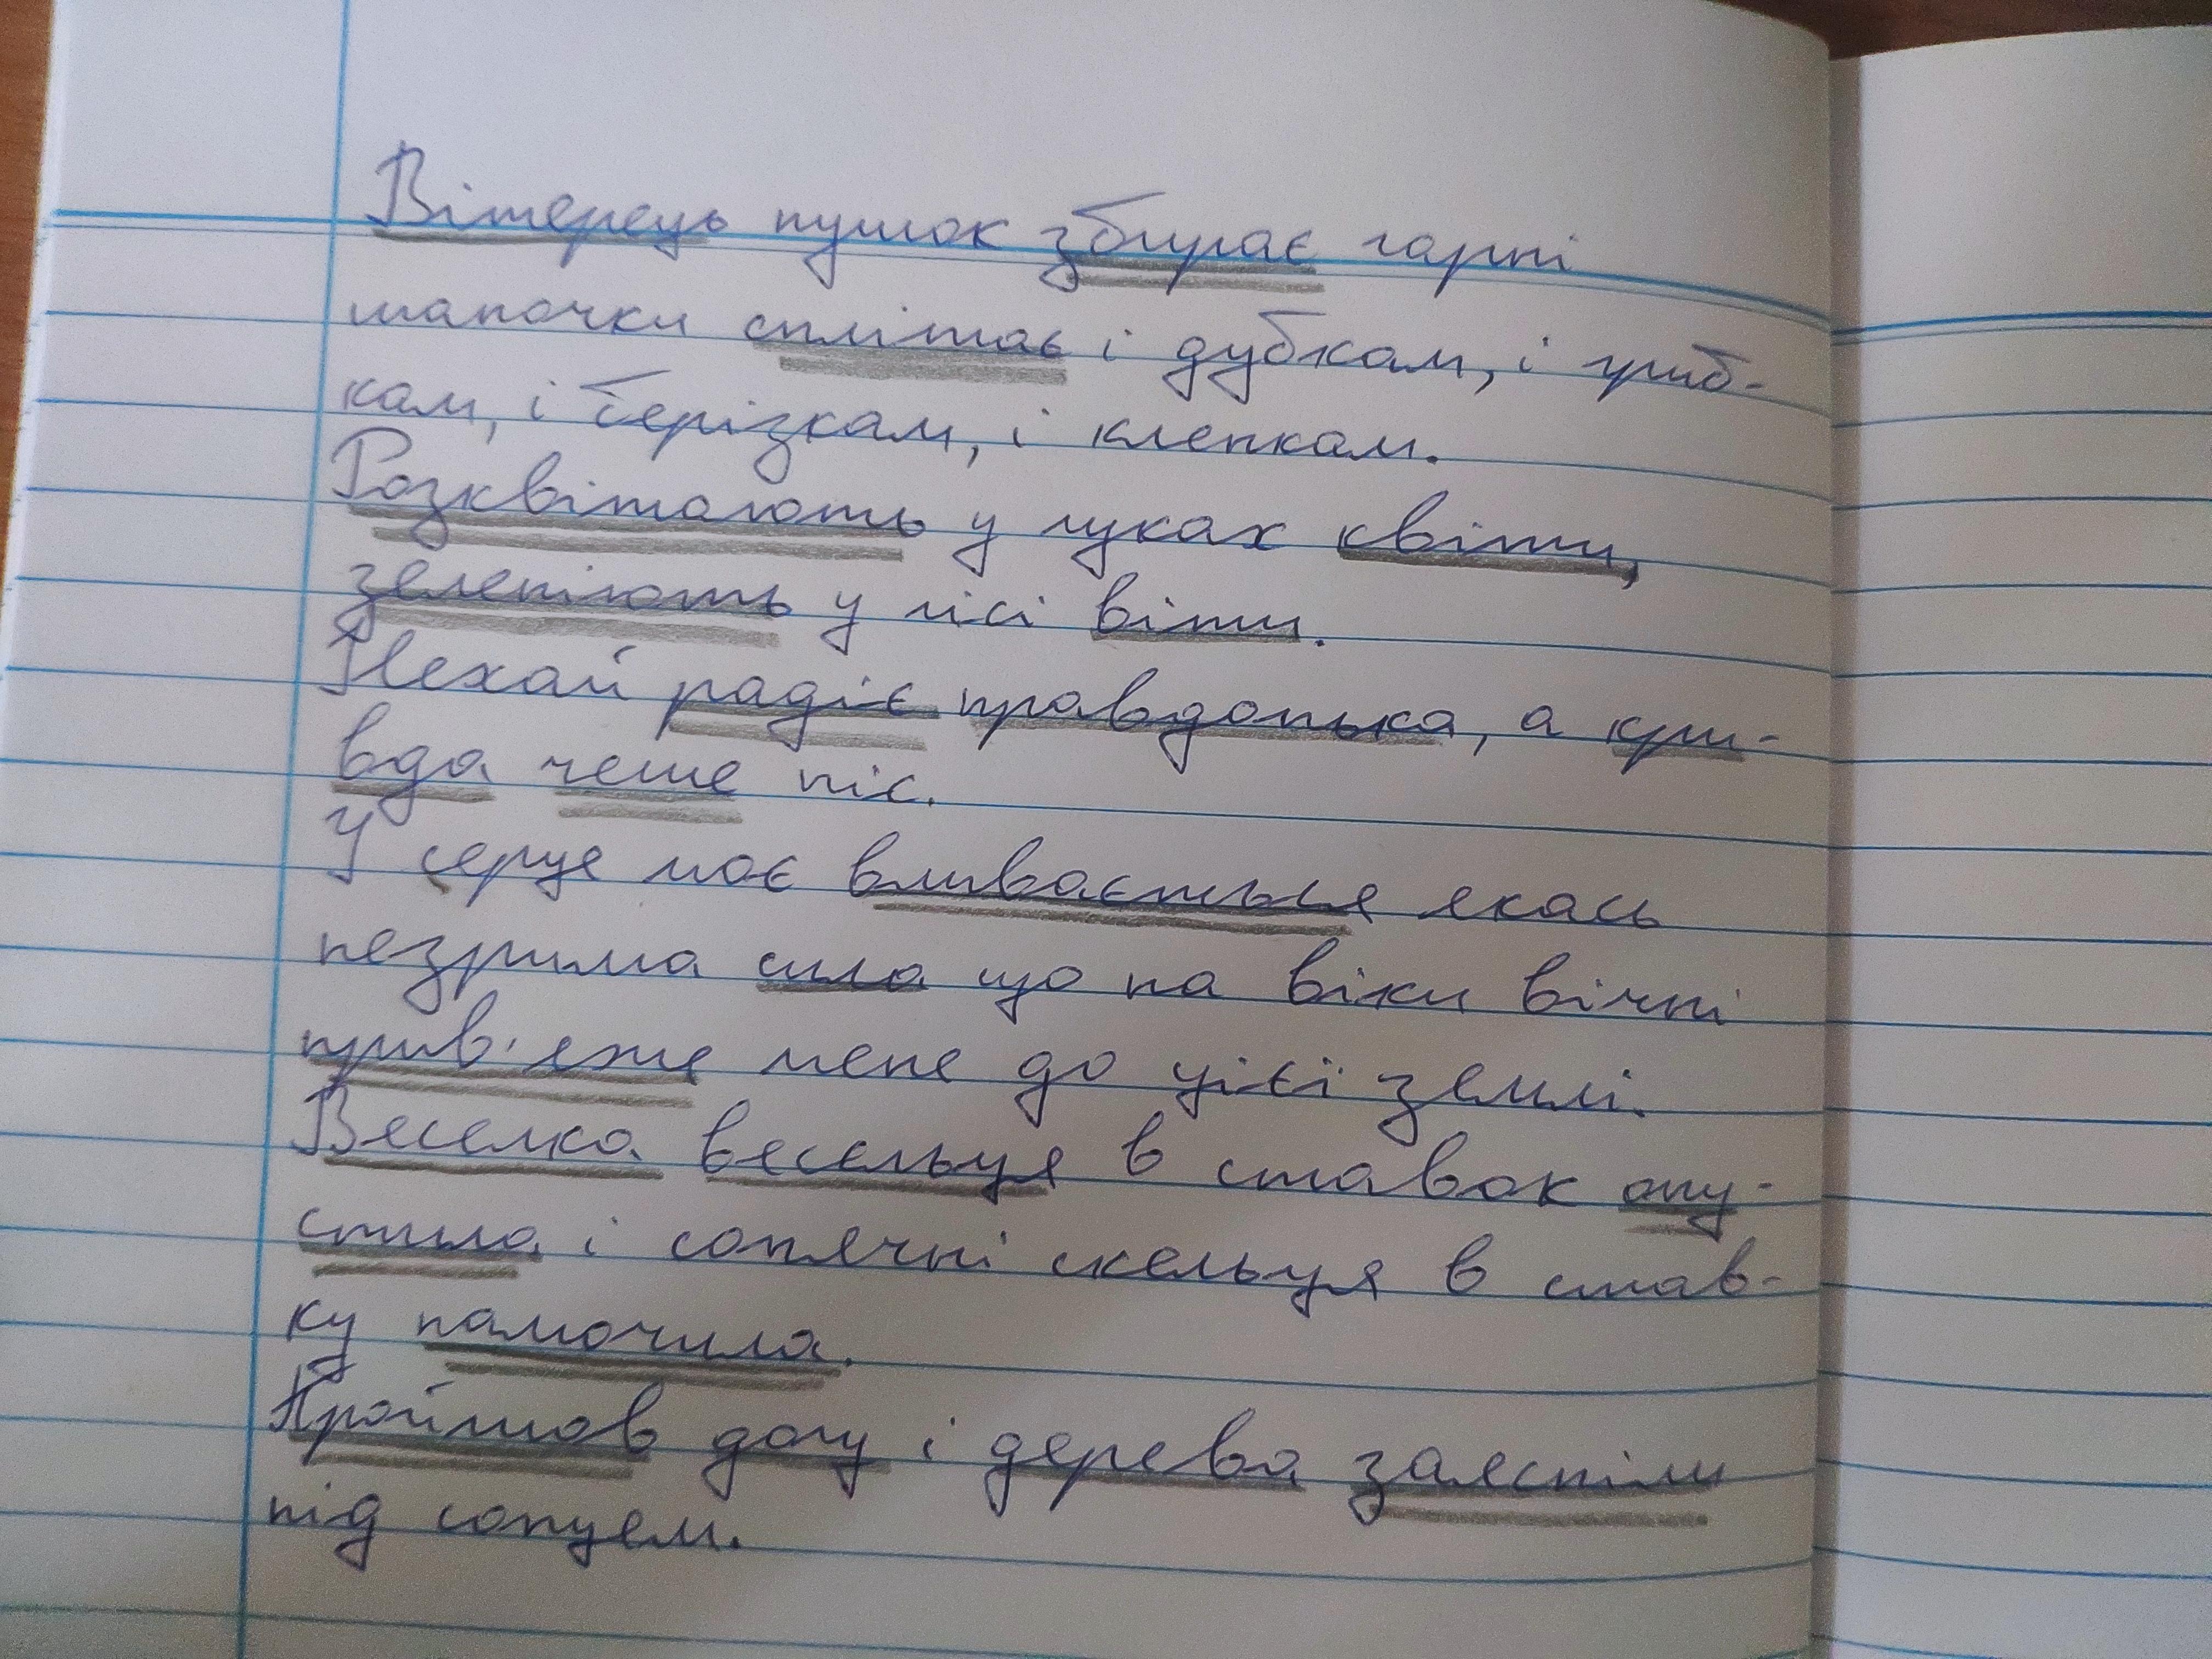 Вітерець пушок збирає гарні
шапочки сплітає і дубкам, і гриб-
кам, і берізкам, і кленкам.
Розквітають у луках квіти,
зеленіють у лісі віти.
Нехай радіє правдонька, а кри-
вда чеше ніс.
У серце моє вливається якась
незрима сила що на віки вічні
прив'яже мене до цієї землі.
Веселка весельця в ставок опу-
стила і сонячні скельця в став-
ку намочила.
Пройшов дощ і дерева заясніли
під сонцем.